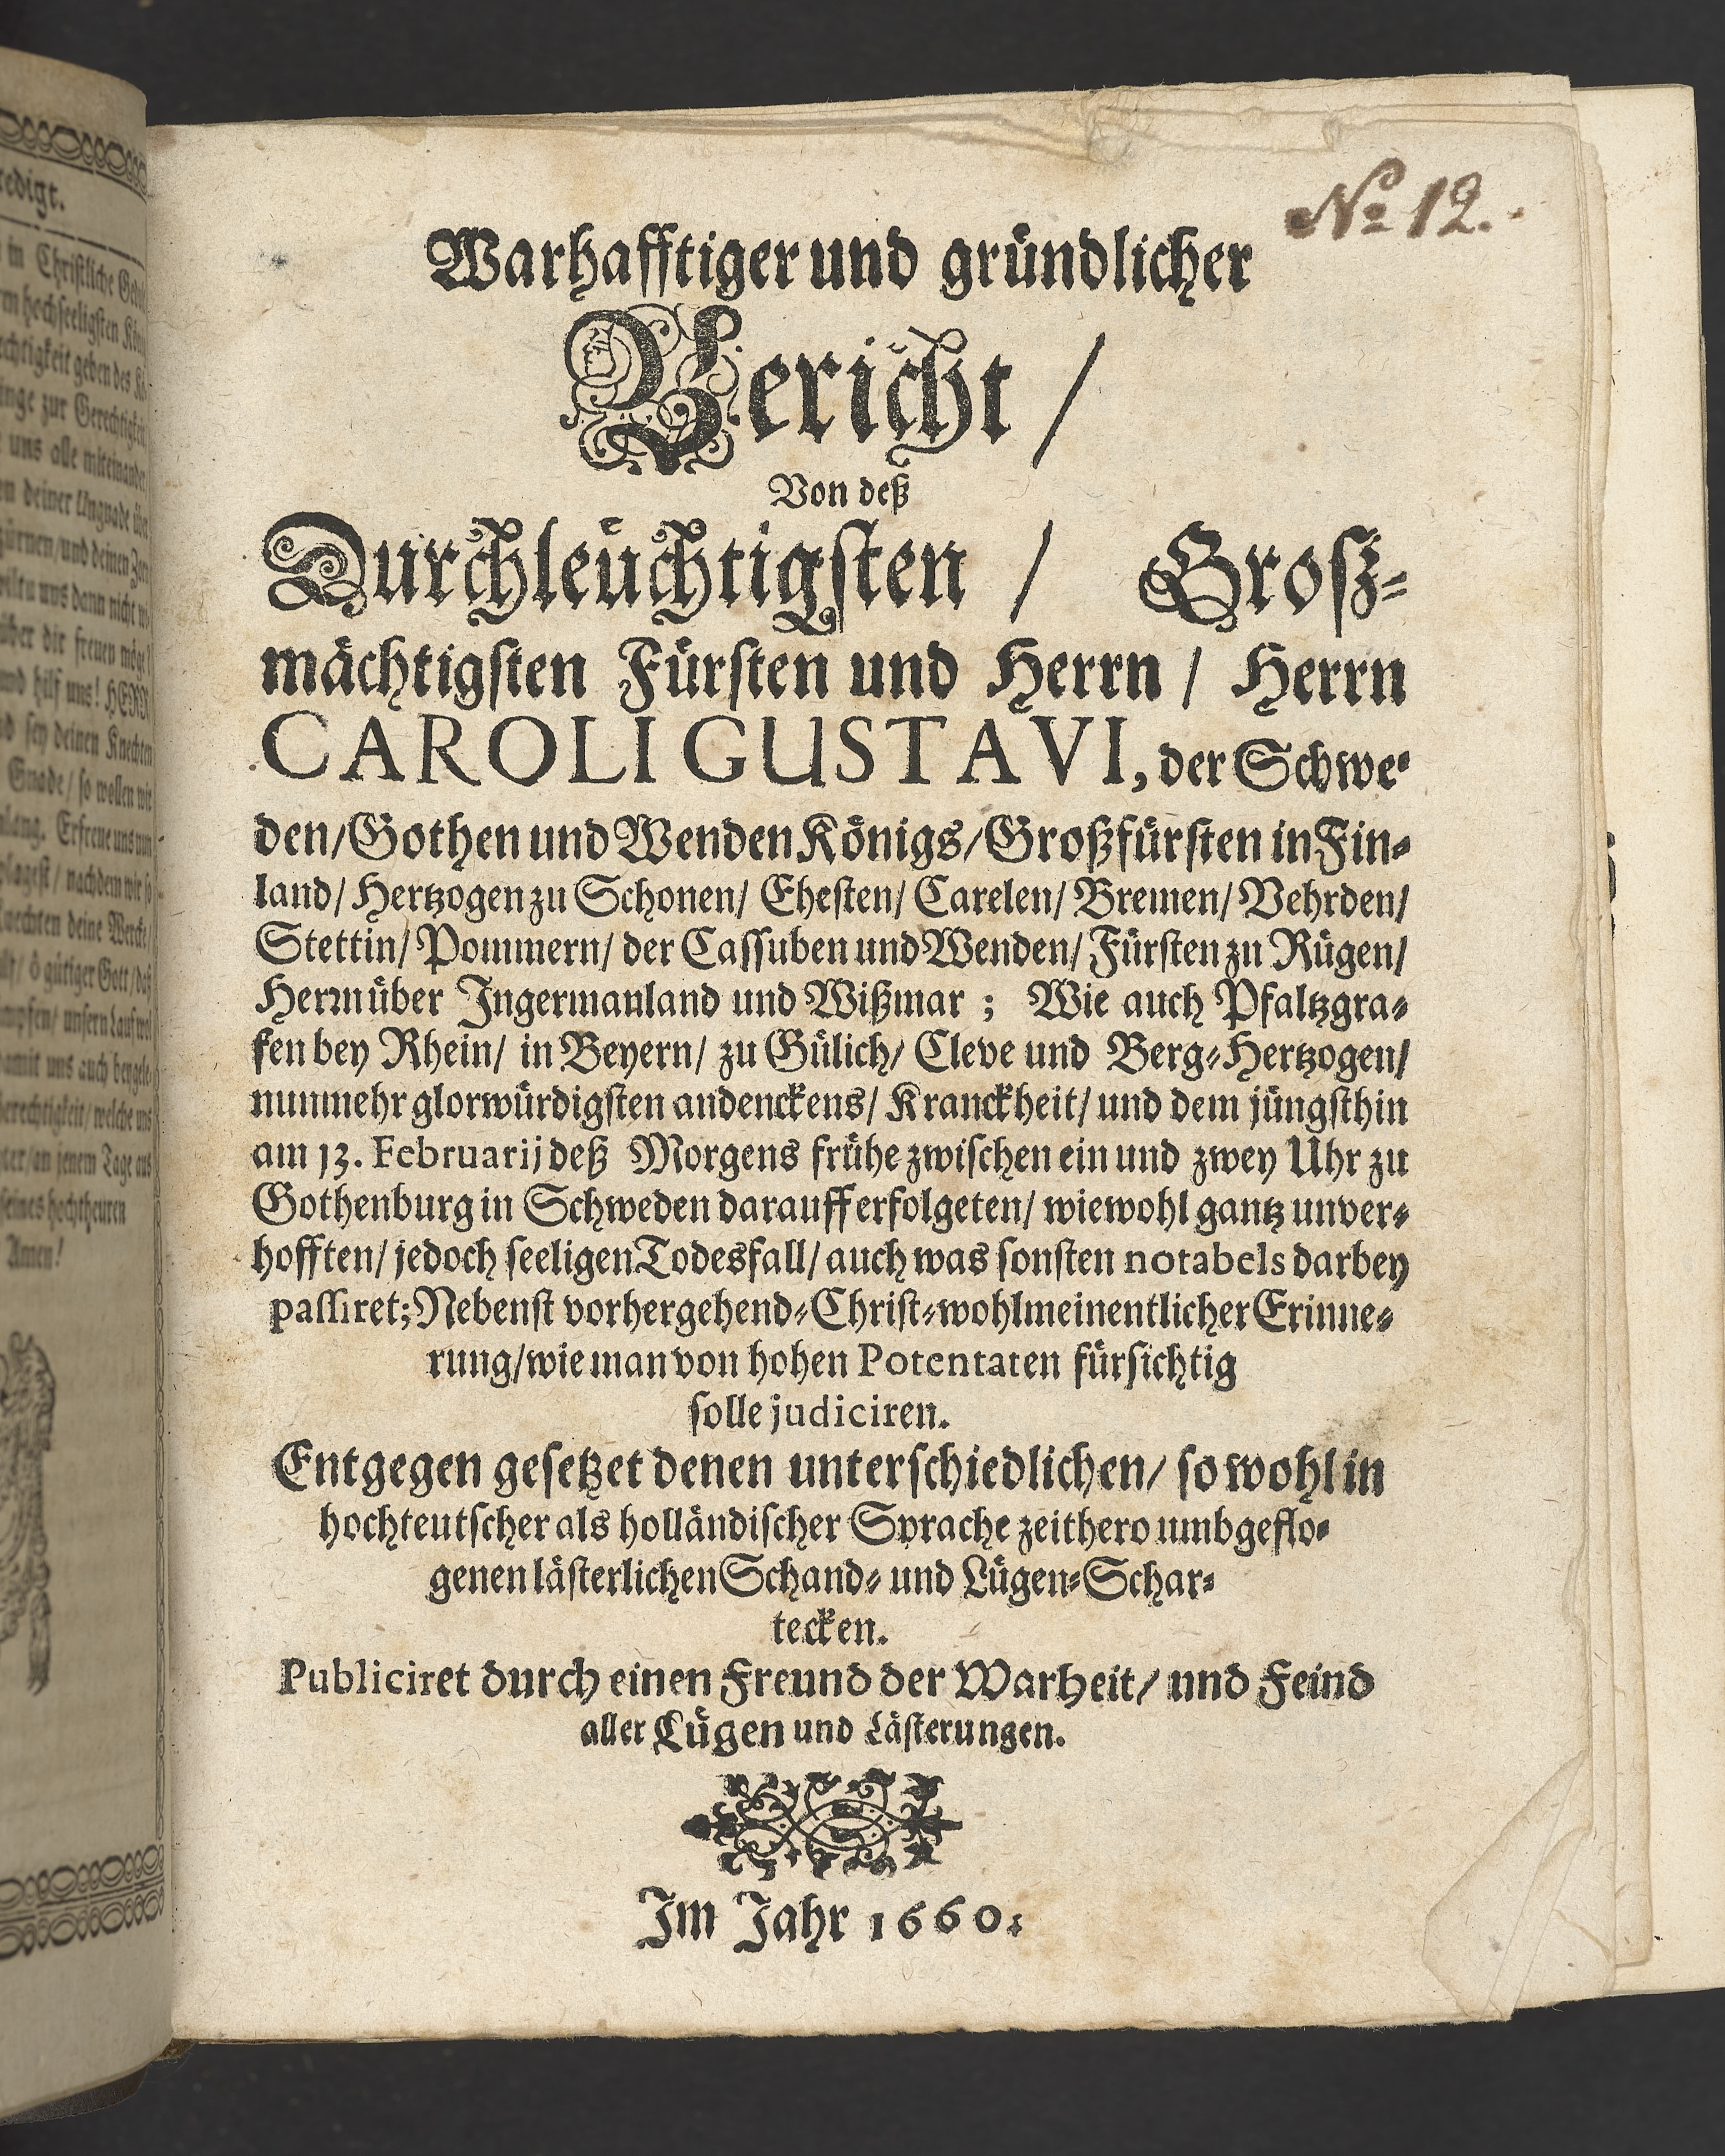 redigt.
in Christliche Ged
m hochseeligsten Kön
echtigkeit geben des Kö
inge zur Gerechtigkeit
uns alle miteinander
on deiner Ungnade übe
zürnen/und deinen Zorn
wiltu uns dann nicht wi
über dir freuen möge
und hilf uns! HERR
nd sey deinen Knechten
Gnade/ so wollen wir
nlang. Erfreue uns nun
plagest/ nachdem wir so
Knechten deine Wercke/
ö gütiger Gott/daß
unsern Lauf wol
damit uns auch
Gerechtigkeit/ welche uns
hter/an jenem Tage aus
seines hochtheuren
Amen!
No 12.
Warhafftiger und gründlicher
Bericht /
Von deß
Durchleuchtigsten / Groß-
mächtigsten Fürsten und Herrn / Herrn
CAROLI GUSTAVI, der Schwe-
den/Gothen und Wenden Königs/Großfürsten in Fin-
land/ Hertzogen zu Schonen/ Ehesten/ Carelen/ Bremen/ Vehrden/
Stettin/ Pommern/ der Cassuben und Wenden/ Fürsten zu Rügen/
Herrn über Ingermanland und Wißmar ; Wie auch Pfaltzgra-
fen bey Rhein/ in Beyern/ zu Gülich/ Cleve und Berg-Hertzogen/
nunmehr glorwürdigsten andenckens/ Kranckheit/ und dem jüngsthin
am 13. Februarij deß Morgens frühe zwischen ein und zwey Uhr zu
Gothenburg in Schweden darauff erfolgeten/ wiewohl gantz unver-
hofften/ jedoch seeligen Todesfall/ auch was sonsten notabels darbey
passiret; Nebenst vorhergehend-Christ-wohlmeinentlicher Erinne-
rung/wie man von hohen Potentaten fürsichtig
solle judiciren.
Entgegen gesetzet denen unterschiedlichen/ so wohl in
hochteutscher als holländischer Sprache zeithero umbgeflo-
genen lästerlichen Schand- und Lügen-Schar-
tecken.
Publiciret durch einen Freund der Warheit/ und Feind
aller Lügen und Lästerungen.
Im Jahr 1660.